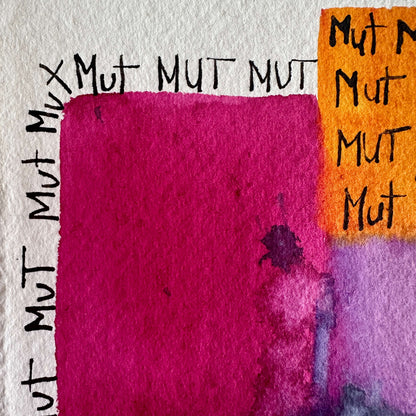 Mut MUT MUT
Mut M
Mut
MUT
Mut
Mut
Mut
MuT
ut